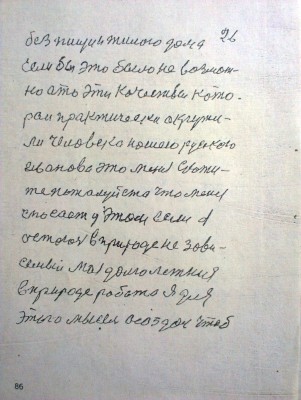 26
без пищи и жилого дома
если бы это было не возмож-
но а то эти качества кото-
рай практически окружи-
ли человека нашего руского
иванова это меня Скажи-
те пожалуйста что меня
спасает у этом если я
остаюс в природе не зави-
семый мая долголетния
в природе работа я для
этого мысел создан чтоб
86